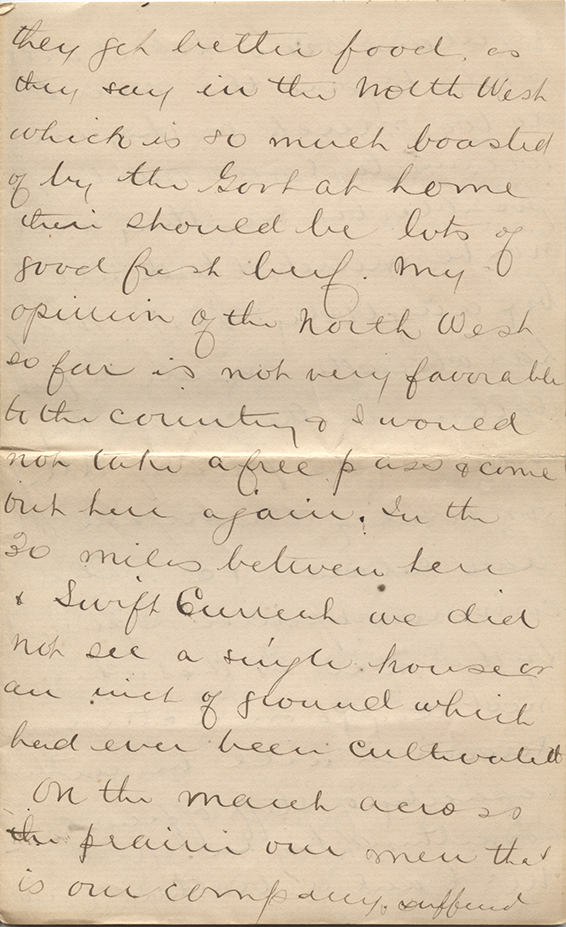 they get better food, as
they say in the North West
which is so much boasted
of by the Govt at home
their should be lots of
good fresh beef. My
opinion of the North West
so far is not very favorable
to the country & I would
not take a free pass & come
out here again. In the
30 miles between here
& Swift Current we did
not see a single house or
an inch of ground which
had ever been cultivated
On the march across
the prairie our men that
is our company, suffered